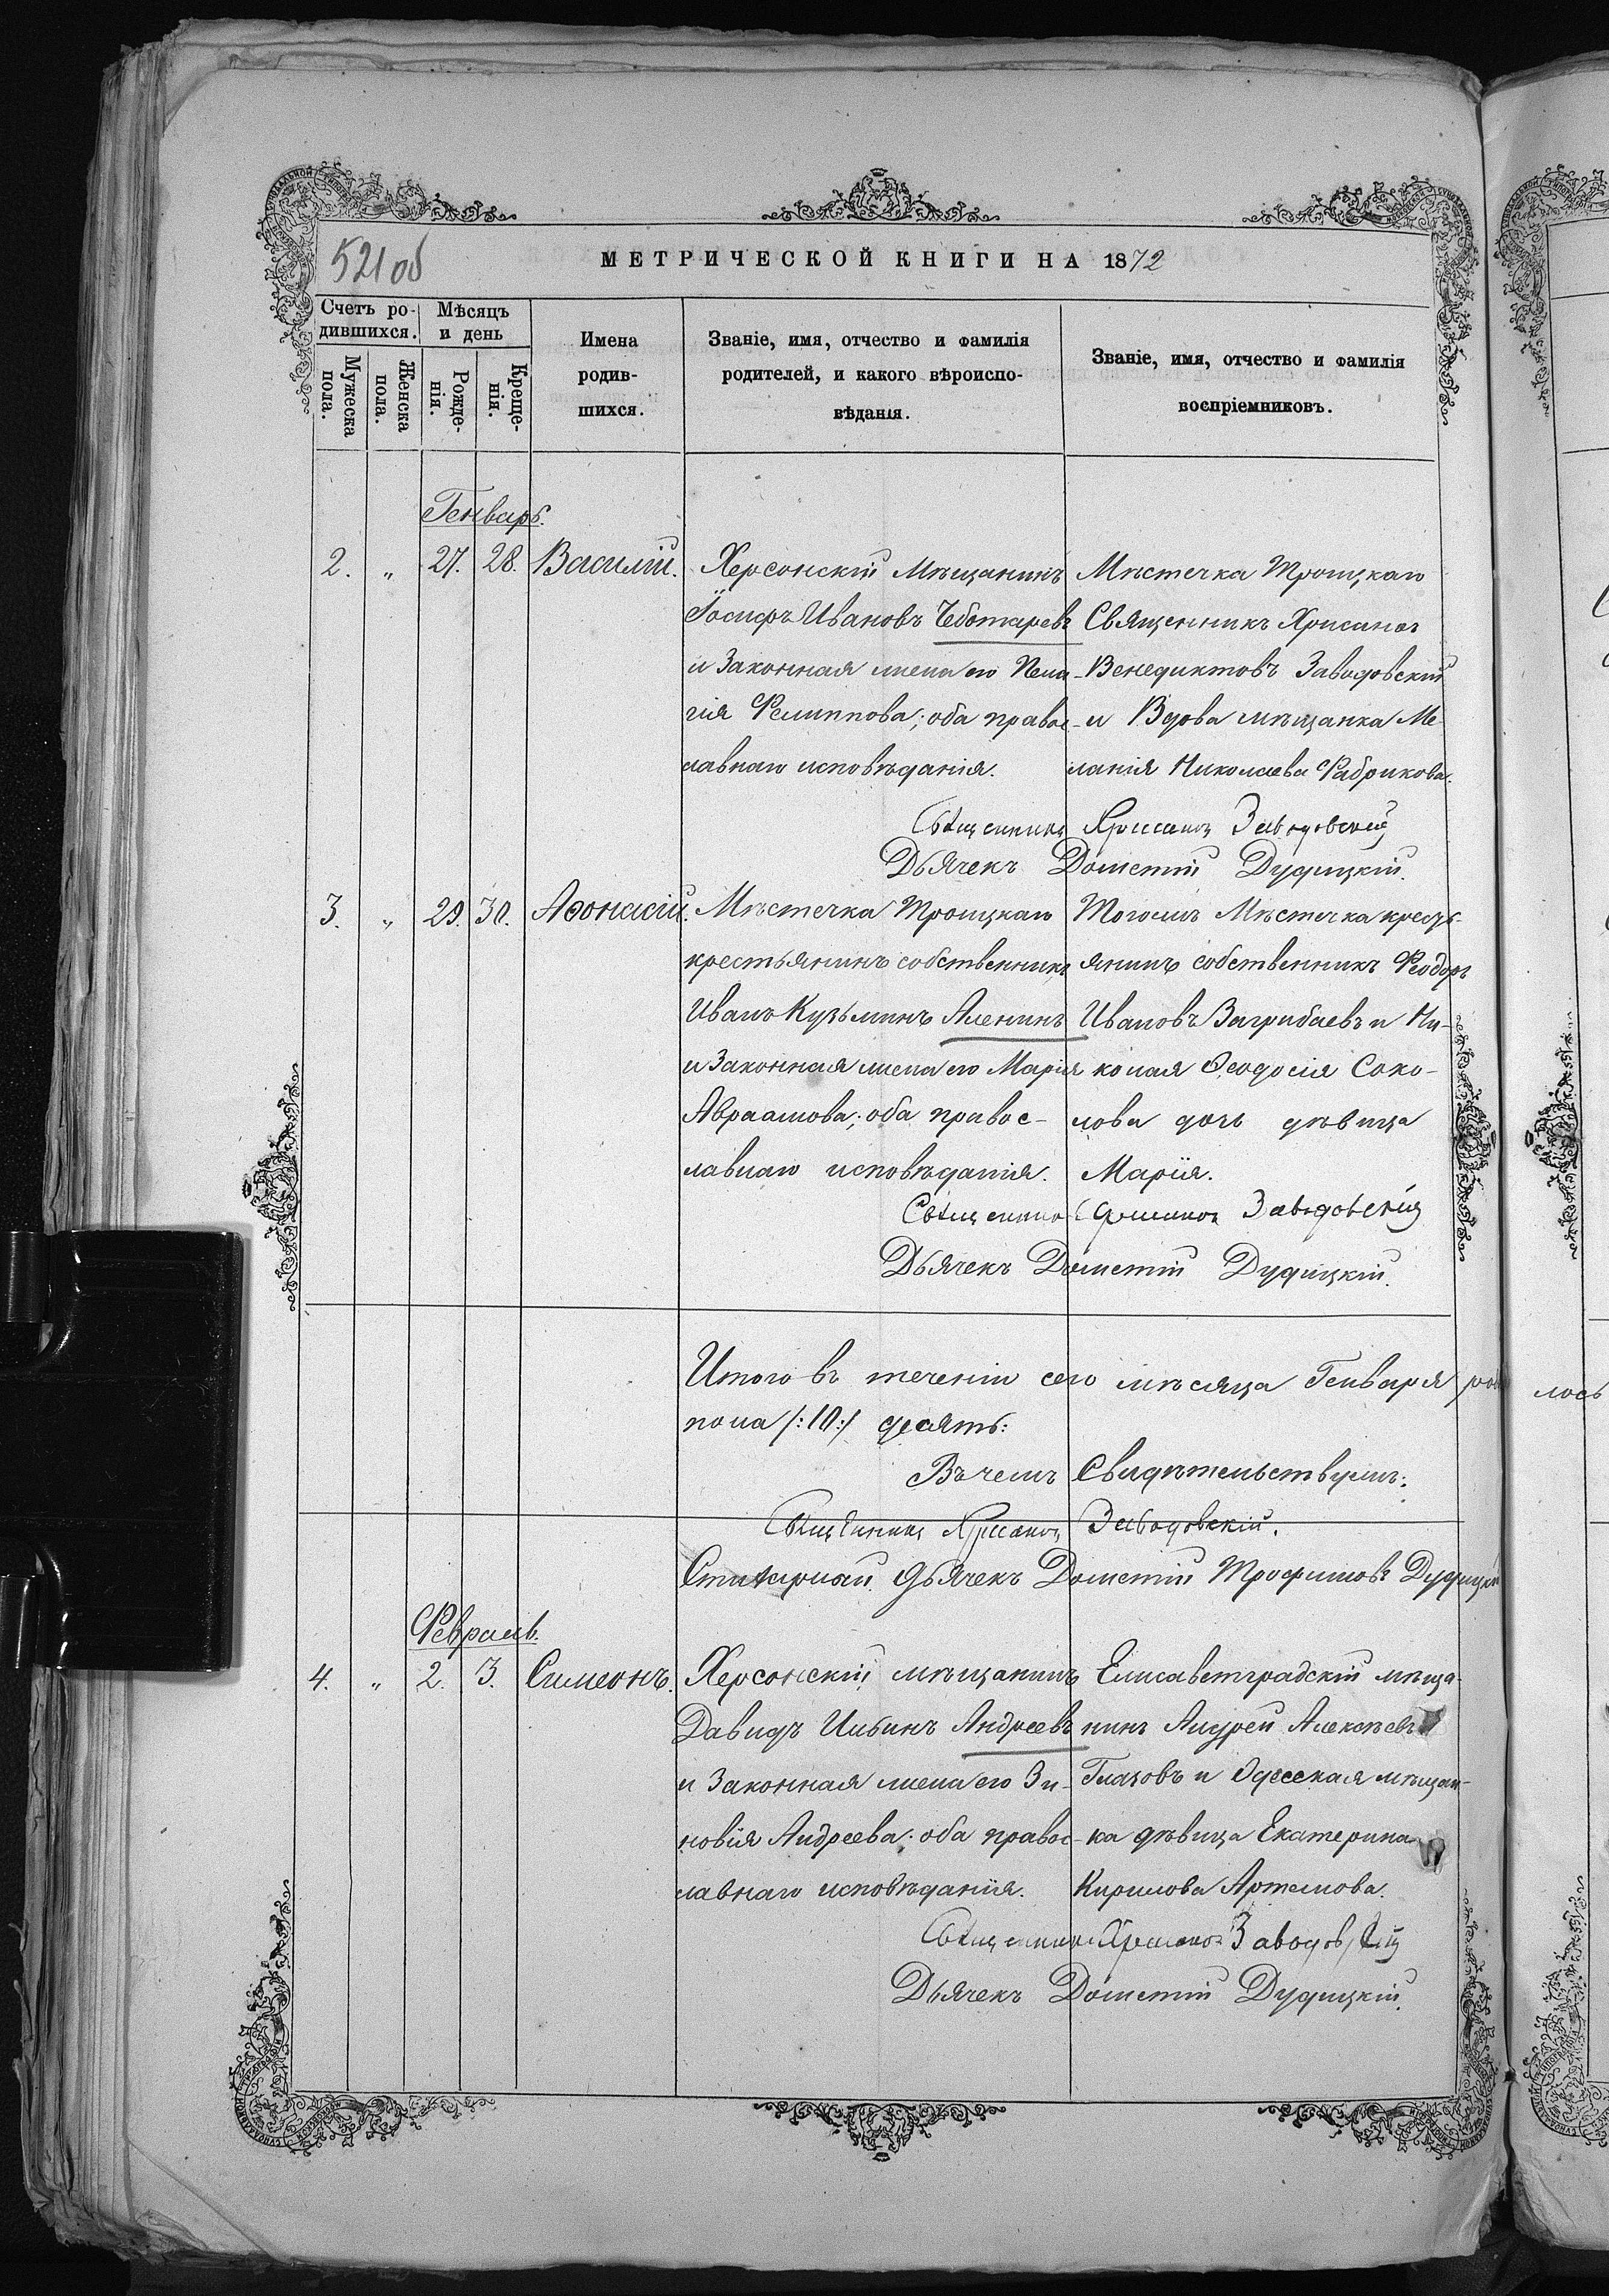 521 об
МЕТРИЧЕСКОЙ КНИГИ НА 1872
Счетъ ро-
дившихся.
Мѣсяцъ
и день
Мужеска
пола.
Женска
пола.
Рожде-
нія.
Креще-
нія.
Имена
родив-
шихся.
Званіе, имя, отчество и фамилія
родителей, и какого вѣроиспо-
вѣданія.
Званіе, имя, отчество и фамилія
воспріемниковъ.
Генварь.
2. „ 27. 28. Василій.
Херсонскій мѣщанинъ
Іосифъ Ивановъ Чеботаревъ
и Законная жена его Пела-
гія Филиппова; оба правос-
лавнаго исповѣданія.
Мѣстечка Троицкаго
Священникъ Хрисанѳъ
Венедиктовъ Заводовскій
и Вдова мѣщанка Ме-
ланія Николаева Фабрикова.
Священникъ Хрисанѳъ Заводовскій
Дьячекъ Дометій Дудицкій.
3. „ 29. 30. Аѳонасій.
Мѣстечка Троицкаго
крестьянинъ собственникъ
Иванъ Кузьминъ Аленинъ
и Законная жена его Марія
Авраамова; оба правос-
лавнаго исповѣданія.
Тогожъ Мѣстечка кресть-
янинъ собственникъ Ѳеодоръ
Ивановъ Загрибаевъ и Ни-
колая Ѳеодосія Соко-
лова дочь дѣвица
Марія.
Священникъ Хрисанѳъ Заводовскій
Дьячекъ Дометій Дудицкій.
Итого въ теченіи сего мѣсяца Генваря
пола /:10:/ десять:
Въ чемъ Свидѣтельствуемъ:
Священникъ Хрисанѳъ Заводовскій.
Стихарный дьячекъ Дометій Трофимовъ Дудицкій
Февраль.
4. „ 2. 3. Симеонъ.
Херсонскій мѣщанинъ
Давидъ Ильинъ Андреевъ
и Законная жена его Зи-
новія Андреева; оба правос-
лавнаго исповѣданія.
Елисаветградскій мѣща-
нинъ Андрей Алексѣевъ
Глазовъ и Одесская мѣщан-
ка дѣвица Екатерина
Кирилова Артемова.
Священникъ Хрисанѳъ Заводовскій
Дьячекъ Дометій Дудицкій.
лось